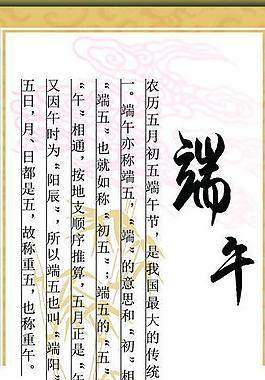 端午
农历五月初五端午节，是我国最大的传统
一。端午亦称端五，“端”的意思和“初”相
“端五”也就如称“初五”；端五的“五”
“午”相通，按地支顺序推算，五月正是“午
又因午时为“阳辰”，所以端五也叫“端阳”
五日，月、日都是五，故称重五，也称重午。